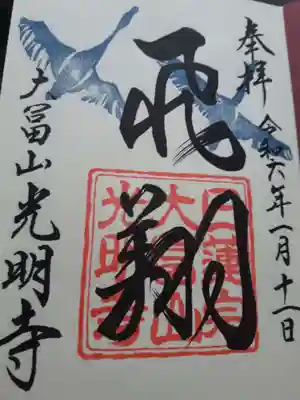 奉拝
令和六年一月十一日
飛翔
日蓮宗
大冨山
光明寺
大冨山光明寺